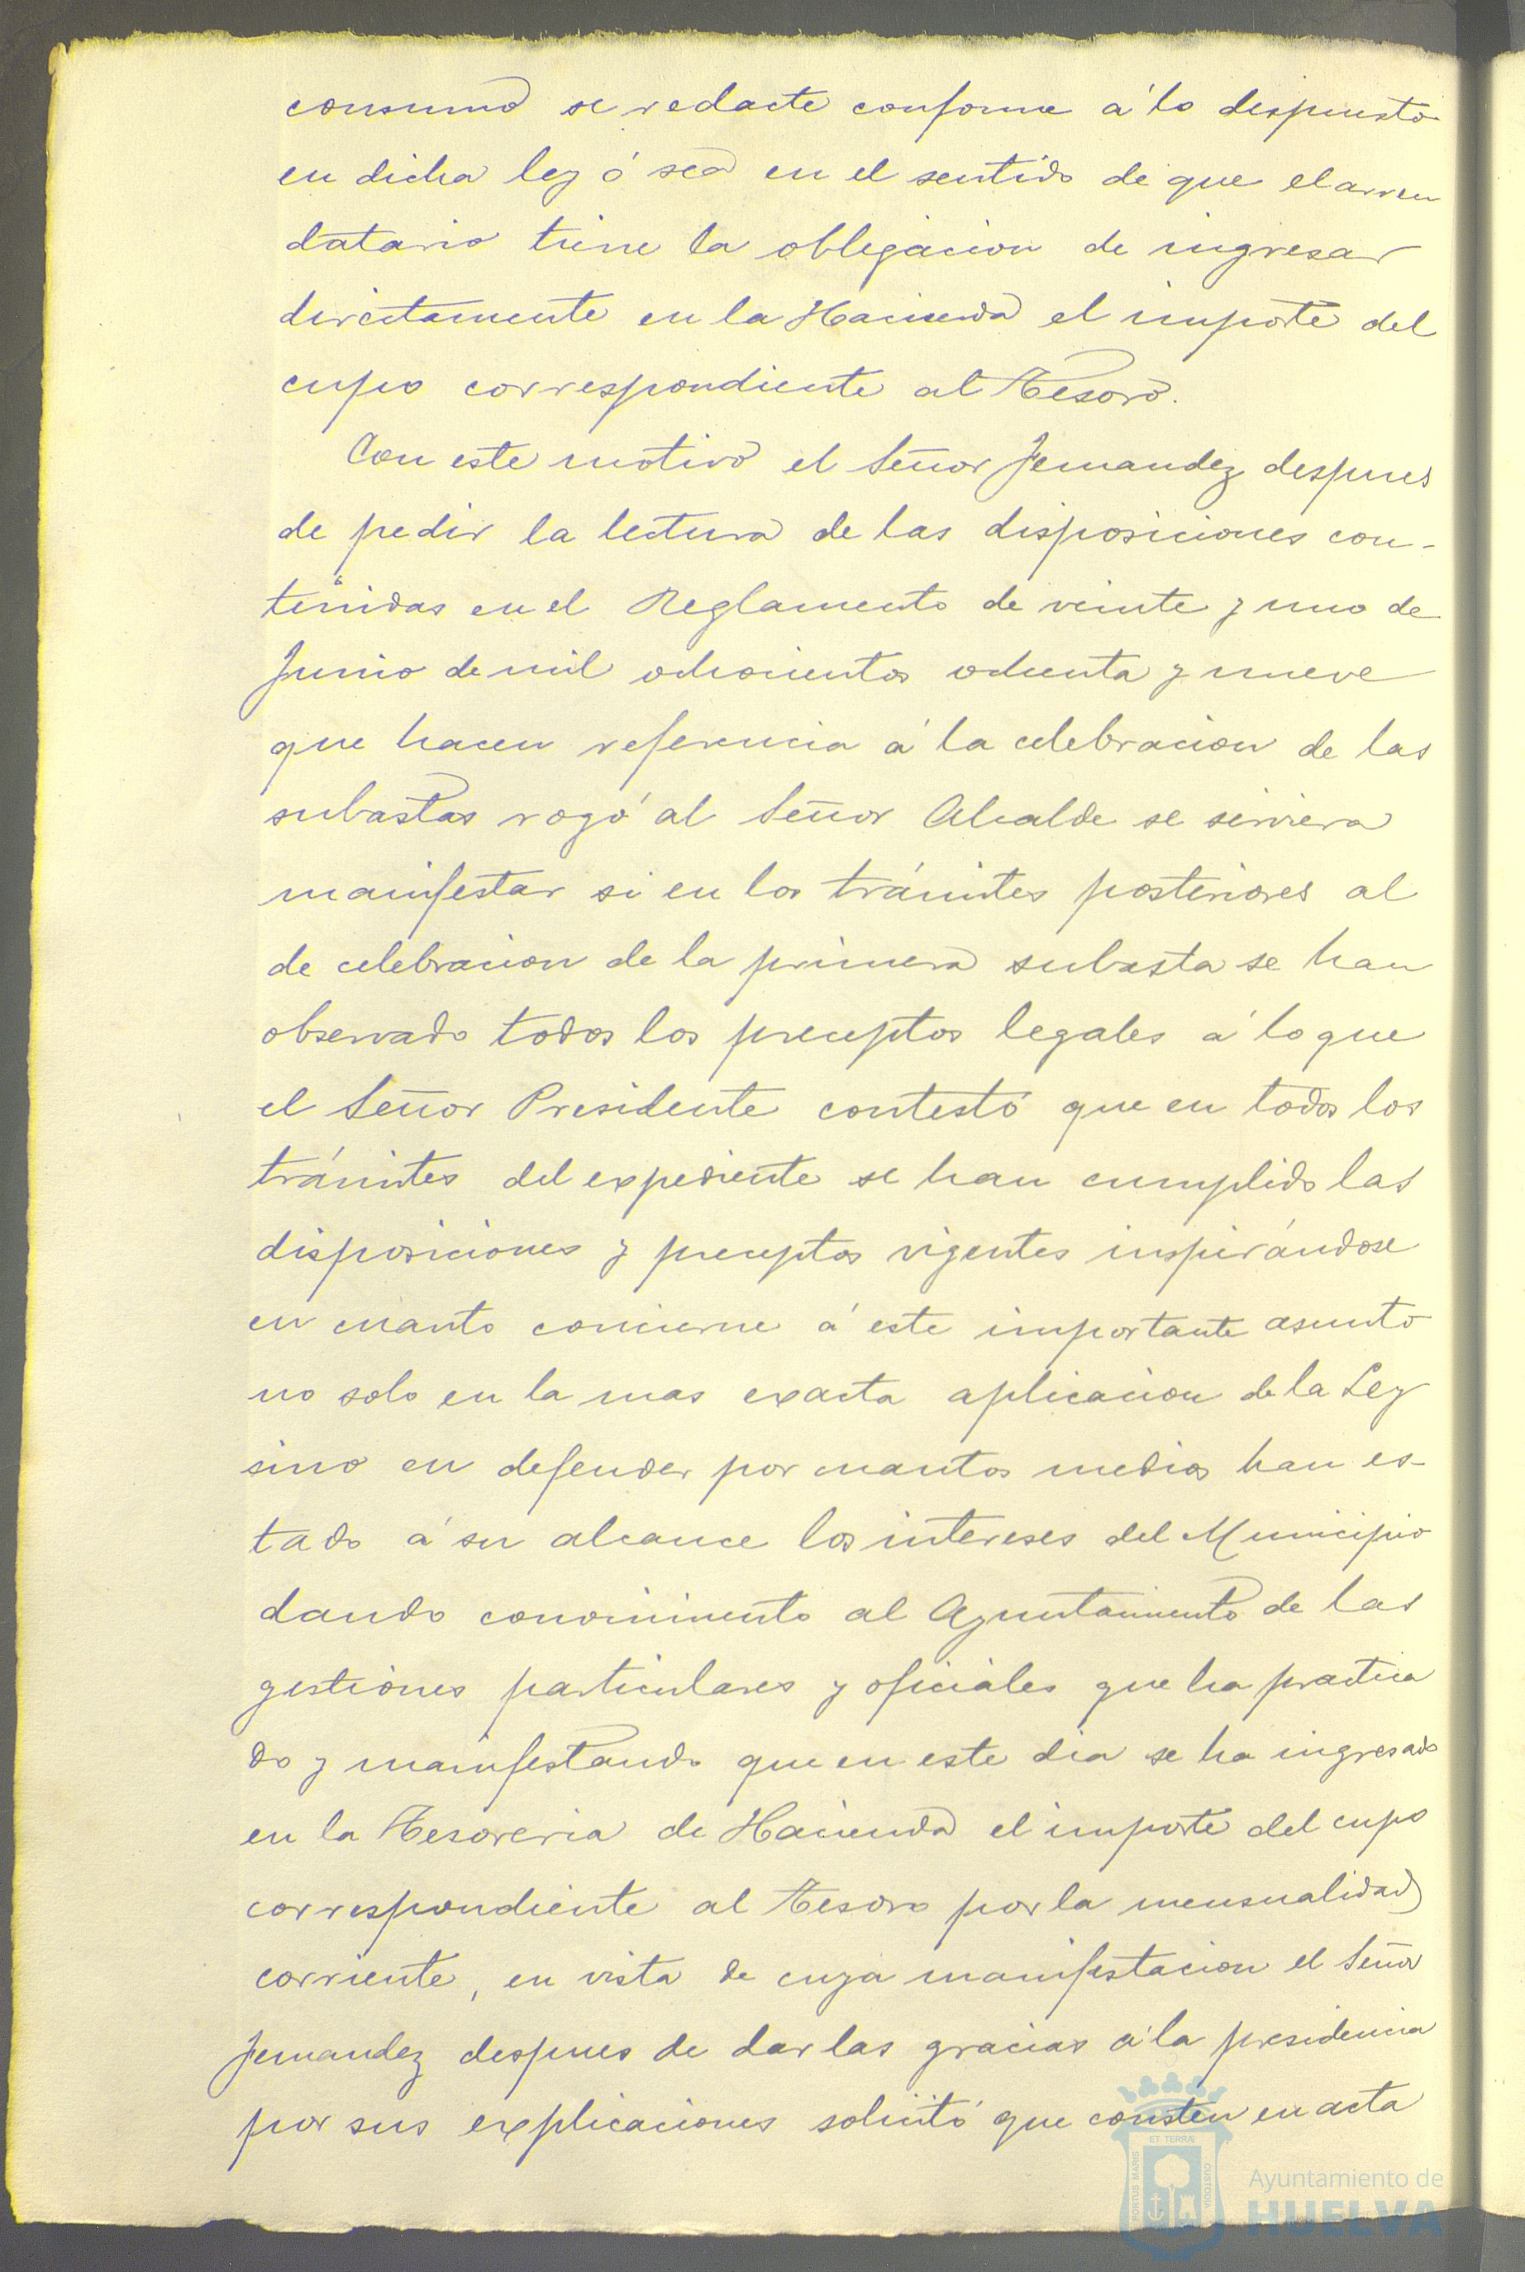 consumo se redacte conforme á lo despuesto
en dicha ley ó sea en el sentido de que el arren
datario tiene la obligacion de ingresar
directamente en la Hacienda el importe del
cupo correspondiente al Tesoro.
Con este motivo el Señor Fernandez despues
de pedir la lectura de las disposiciones con-
tenidas en el Reglamento de veinte y uno de
Junio de mil ochocientos ochenta y nueve
que hacen referencia á la celebracion de las
subastas rogó al Señor Alcalde se sirviera
manifestar si en los trámites posteriores al
de celebracion de la primera subasta se han
observado todos los preceptos legales á lo que
el Señor Presidente contestó que en todos los
trámites del expediente se han cumplido las
disposiciones y preceptos vigentes inspirándose
en cuanto concierne á este importante asunto
no solo en la mas exacta aplicacion de la Ley
sino en defender por cuantos medios han es-
tado á su alcance los intereses del Municipio
dando conocimiento al Ayuntamiento de las
gestiones particulares y oficiales que ha practica
do y manifestando que en este dia se ha ingresado
en la Tesoreria de Hacienda el importe del cupo
correspondiente al Tesoro por la mensualidad
corriente, en vista de cuya manifestacion el Señor
Fernandez despues de dar las gracias á la presidencia
por sus explicaciones solicitó que consten en acta
PORTUS MARIS ET TERRÆ CUSTODIA
Ayuntamiento de
HUELVA